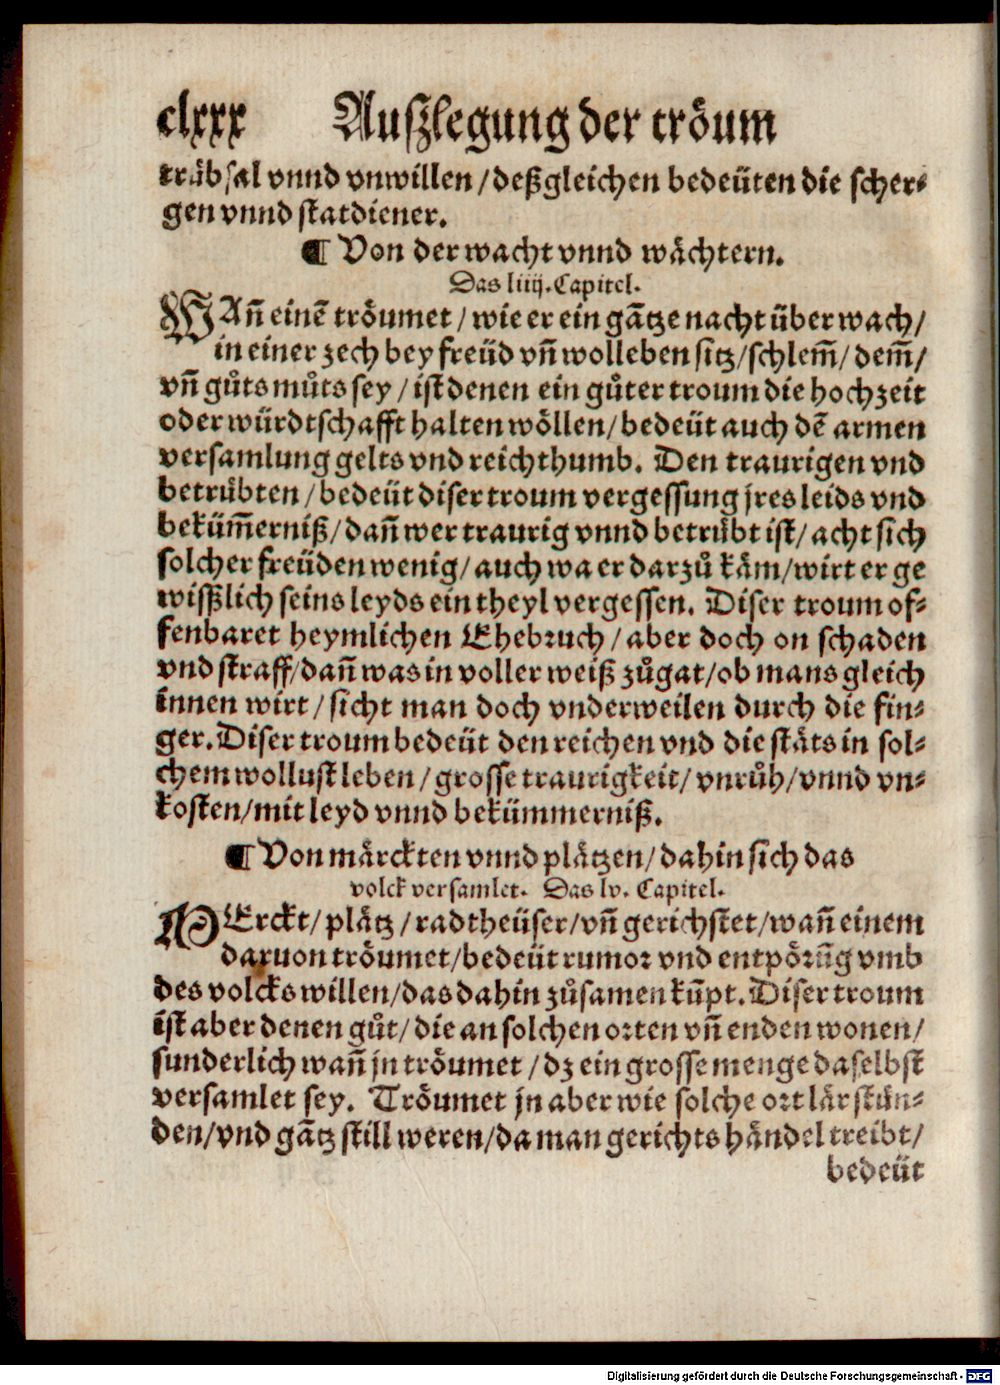 clxxx Auſzlegung der troͤum
truͤbſal vnnd vnwillen / deßgleichen bedeüten die ſcher⸗
gen vnnd ſtatdiener.
¶ Von der wacht vnnd waͤchtern.
Das liiij. Capitel.
WAñ einẽ troͤumet / wie er ein gãtze nacht über wach /
in einer zech bey freüd vñ wolleben ſitz / ſchlem̃ / dem̃ /
vñ guͦts muͦts ſey / iſt denen ein guͦter troum die hochzeit
oder würdtſchafft halten woͤllen / bedeüt auch dẽ armen
verſamlung gelts vnd reichthumb. Den traurigen vnd
betruͤbten / bedeüt diſer troum vergeſſung jres leids vnd
beküm̃erniß / dañ wer traurig vnnd betruͤbt iſt / acht ſich
ſolcher freüden wenig / auch wa er darzuͦ kaͤm / wirt er ge
wiſßlich ſeins leyds ein theyl vergeſſen. Diſer troum of⸗
fenbaret heymlichen Ehebꝛuch / aber doch on ſchaden
vnd ſtraff / dañ was in voller weiß zuͦgat / ob mans gleich
innen wirt / ſicht man doch vnderweilen durch die fin⸗
ger. Diſer troum bedeüt den reichen vnd die ſtaͤts in ſol⸗
chem wolluſt leben / groſſe traurigkeit / vnruͦh / vnnd vn⸗
koſten / mit leyd vnnd bekümmerniß.
¶ Von maͤrckten vnnd plaͤtzen / dahin ſich das
volck verſamlet. Das lv. Capitel.
MErckt / plaͤtz / radtheüſer / vñ gerichſtet / wañ einem
daruon troͤumet / bedeüt rumoꝛ vnd entpoͤꝛũg vmb
des volcks willen / das dahin zuͦſamen kũpt. Diſer troum
iſt aber denen guͦt / die an ſolchen oꝛten vñ enden wonen /
ſunderlich wañ jn troͤumet / dz ein groſſe menge daſelbſt
verſamlet ſey. Troͤumet jn aber wie ſolche oꝛt laͤr ſtuͤn⸗
den / vnd gãtz ſtill weren / da man gerichts haͤndel treibt /
bedeüt
Digitalisierung gefördert durch die Deutsche Forschungsgemeinschaft - DFG